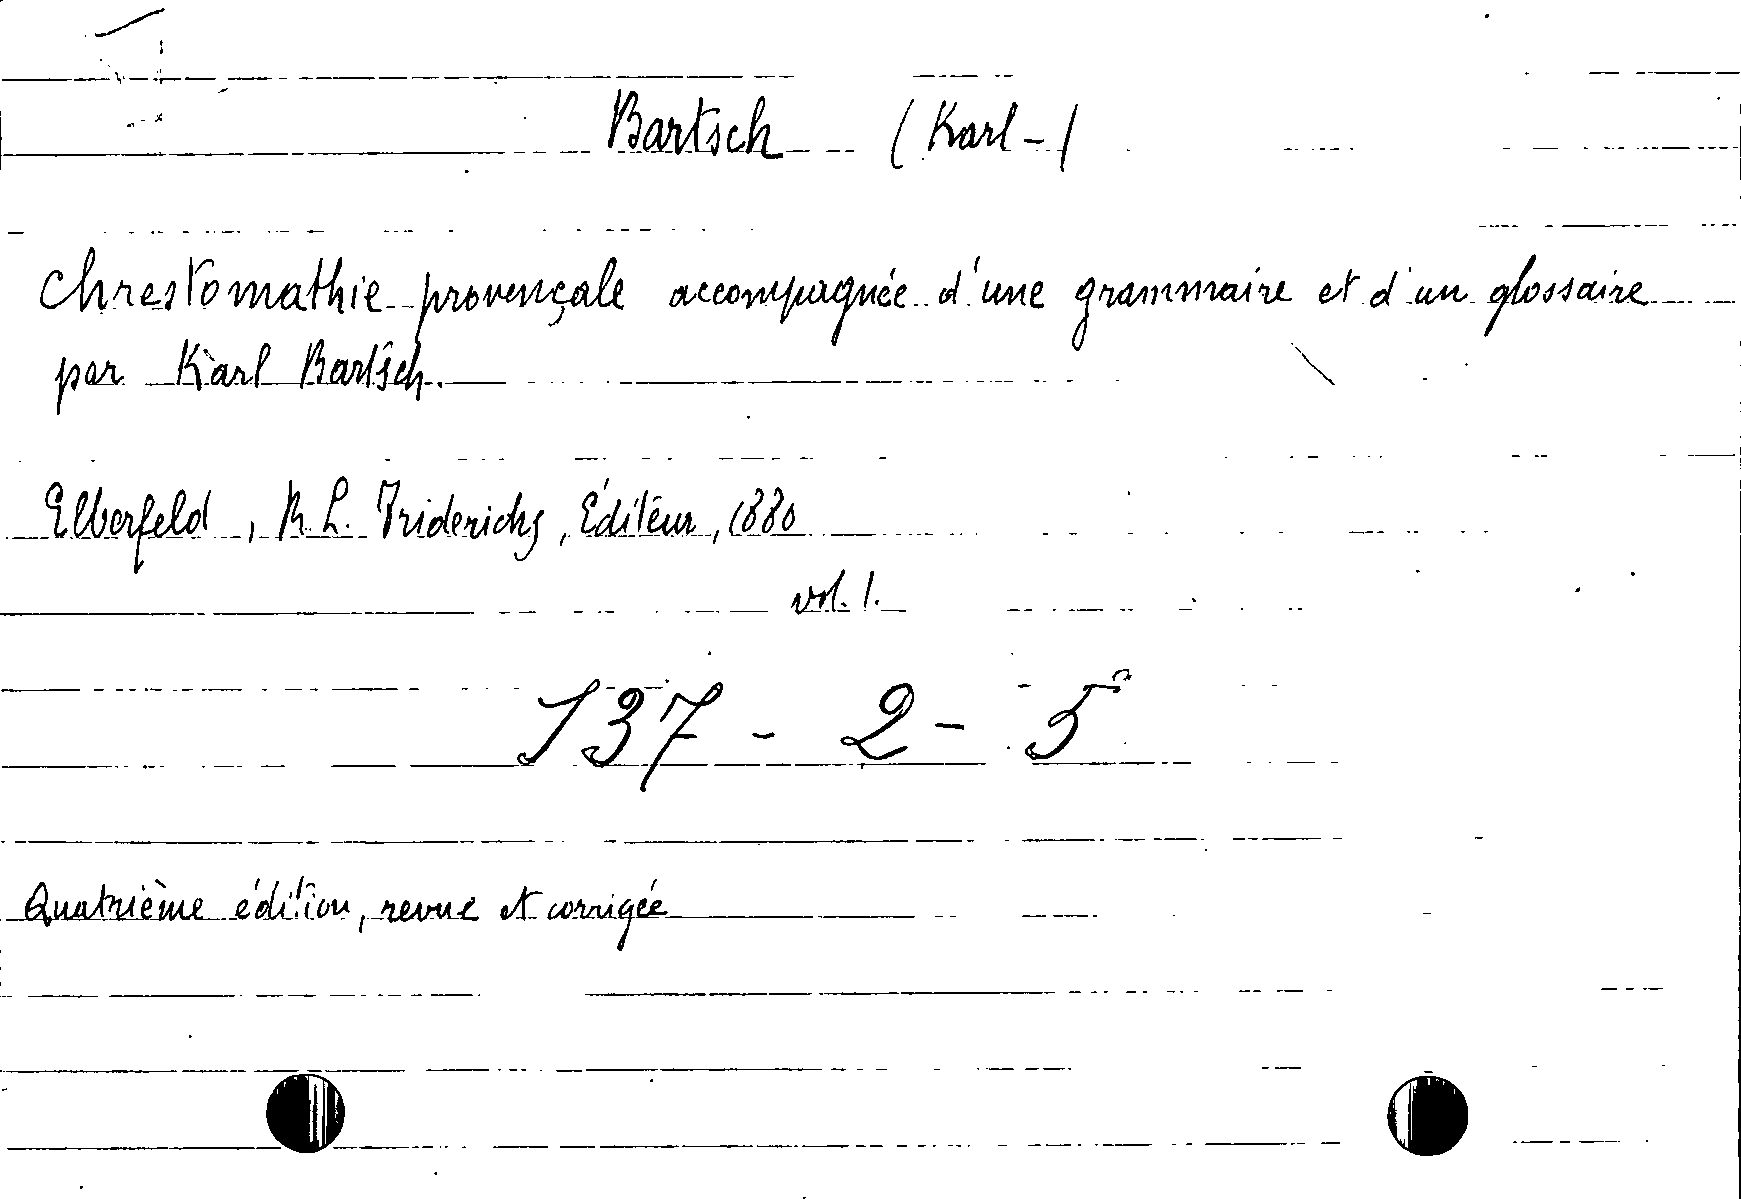 Bartsch (Karl-)
Chrestomathie provençale accompagnée d'une grammaire et d'un glossaire
par Karl Bartsch.
Elberfeld, R. L. Friderichs, Éditeur, 1880
vol. 1.
137 - 2 - 5
Quatrième édition, revue et corrigée